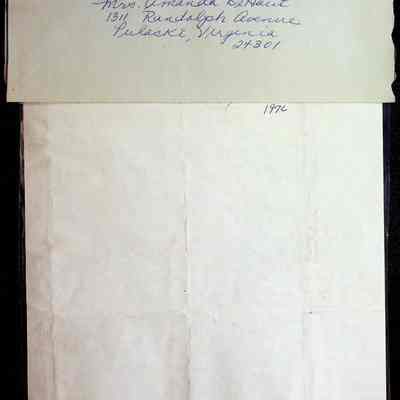 Mrs. Amanda DeHart
1311 Randolph Avenue
Pulaski, Virginia
24301
1976